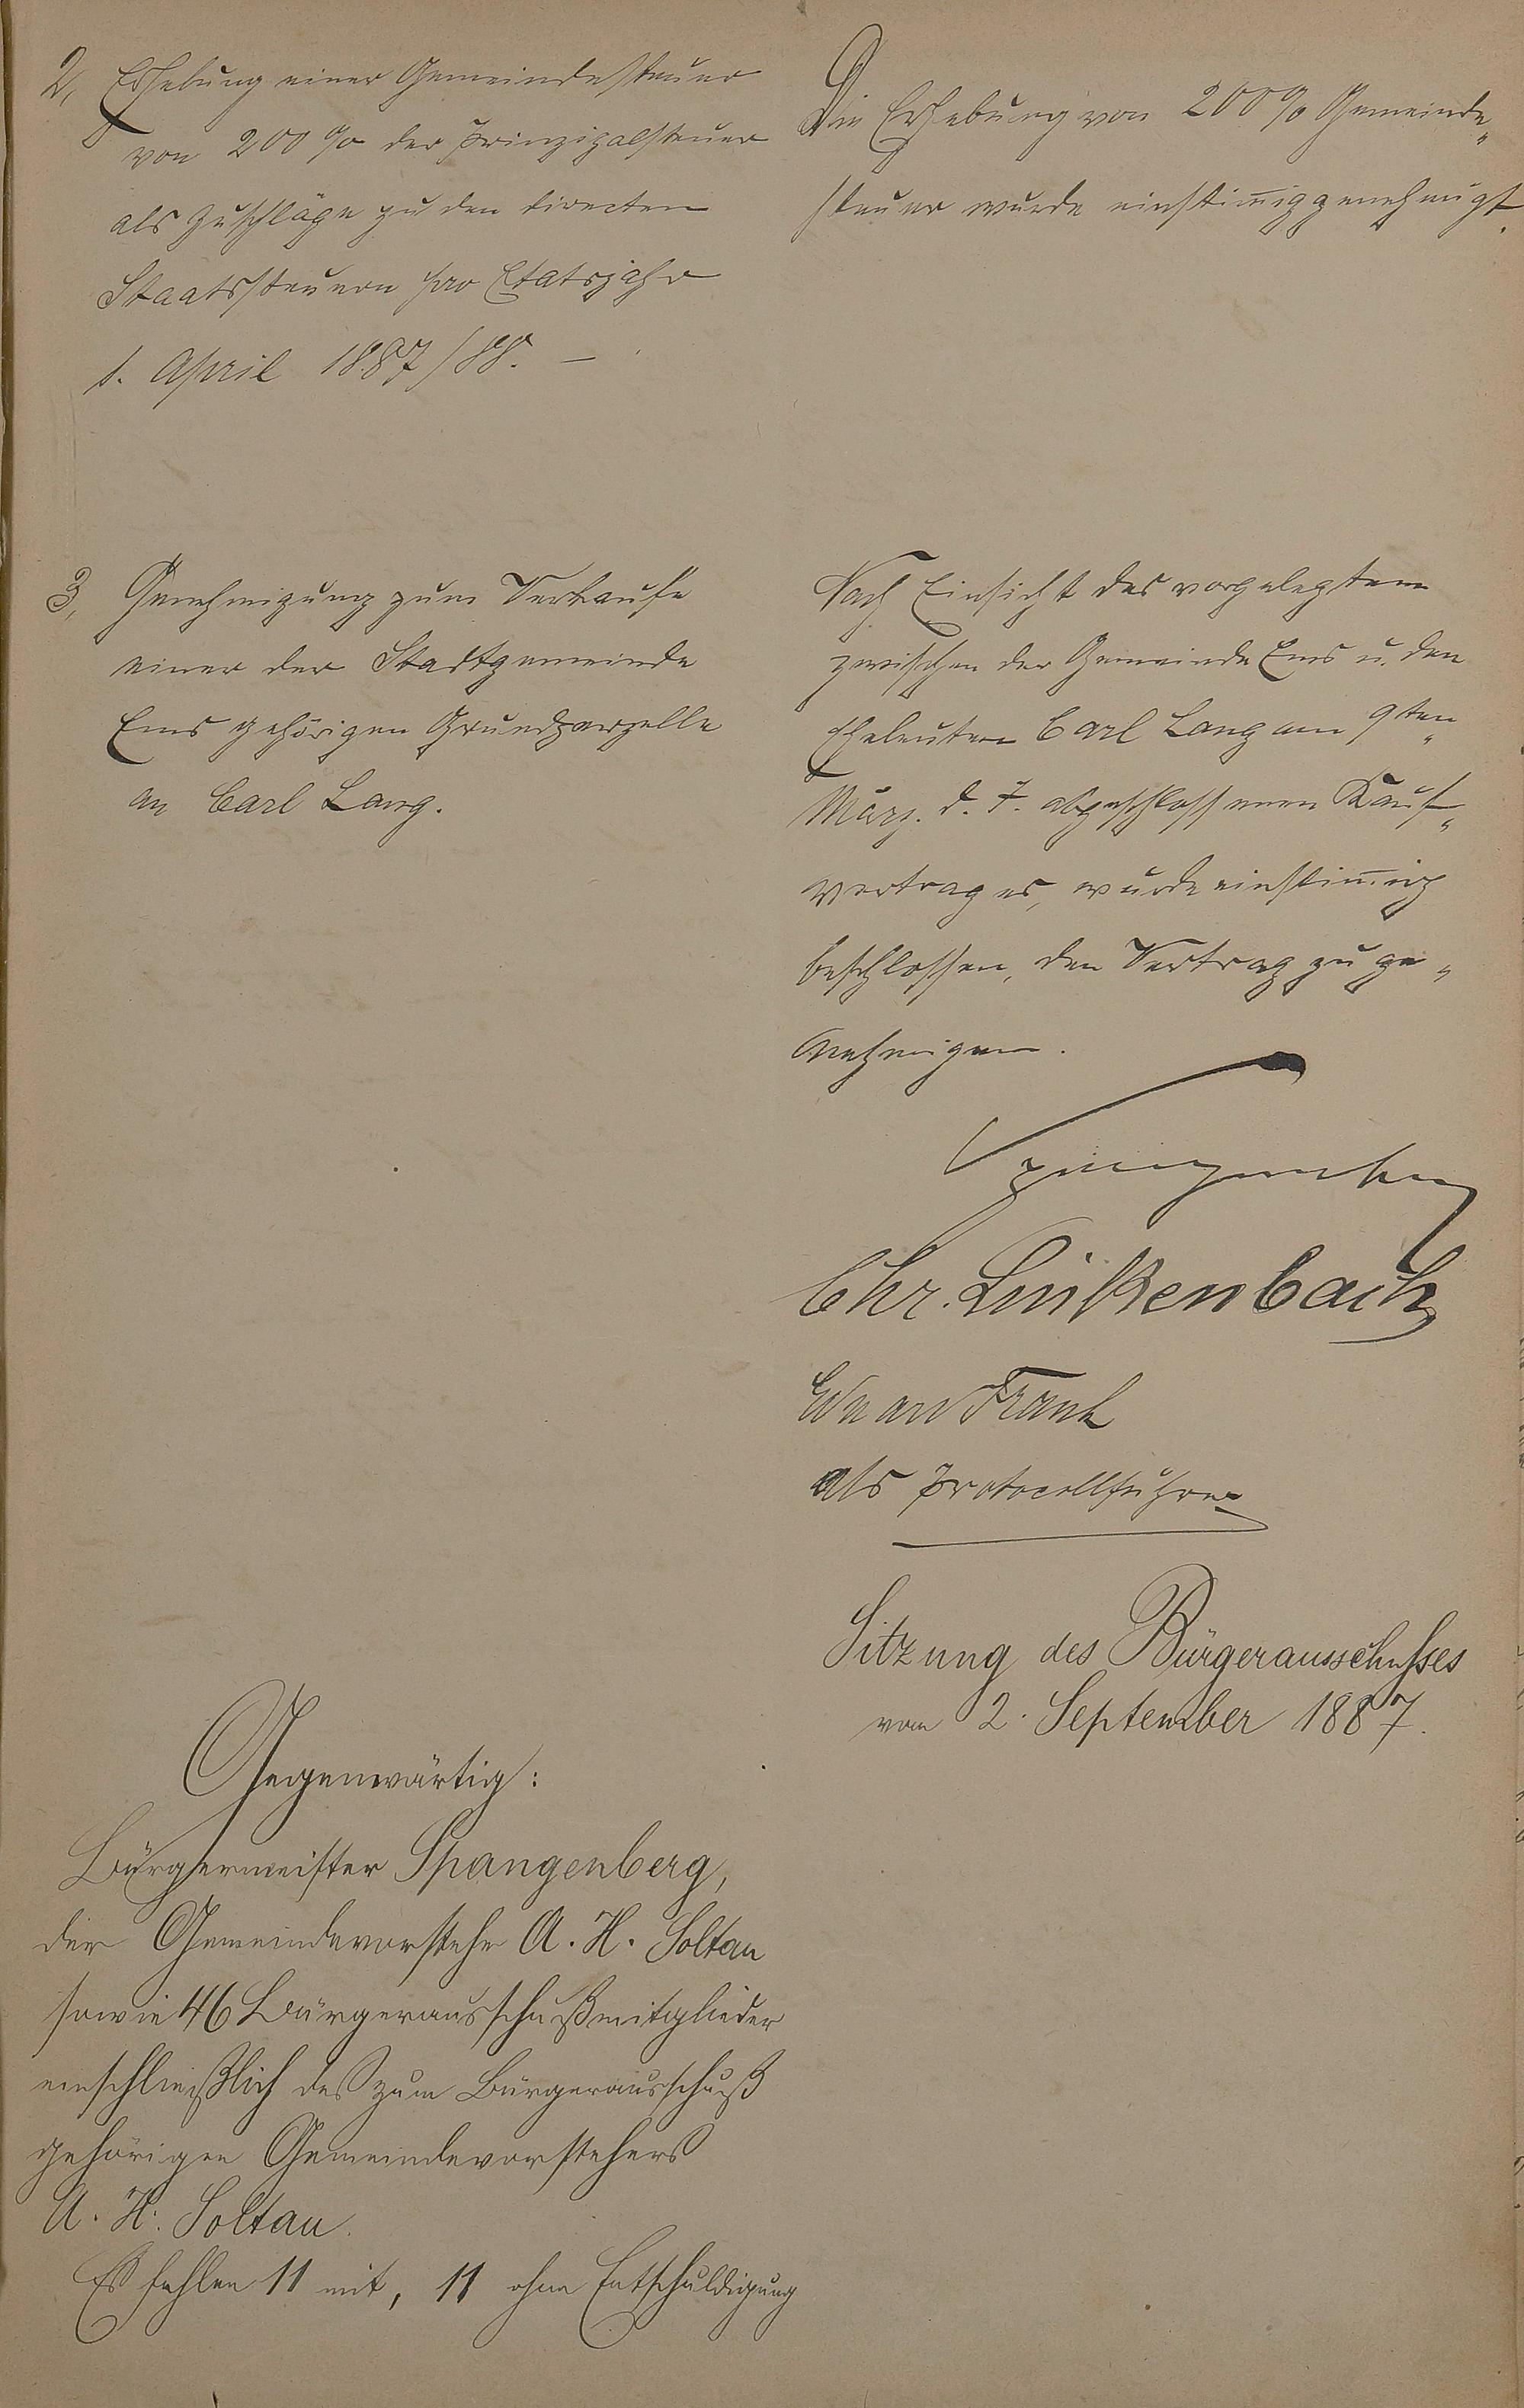 2, Erhebung einer Gemeindesteuer
von 200 % der Prinzipalsteuer
als Zuschläge zu den directen
Staatssteuern pro Etatsjahr
1. April 1887/88. —
Die Erhebung von 200 % Gemeinde„
steuer wurde einstim̄ig genehmigt.
3, Genehmigung zum Verkaufe
einer der Stadtgemeinde
Ems gehörigen Grundparzelle
an Carl Lang.
Nach Einsicht des vorgelegten
zwischen der Gemeinde Ems u. den
Eheleuten Carl Lang am 9ten„
März d. J. abgeschlossenen Kauf„
vertrages, wurde einstim̄ig
beschlossen, den Vertrag zu ge„
nehmigen.
Spangenberg
Chr. Linkenbach
Eduard Frank
als Protocollführer
Sitzung des Bürgerausschusses
vom 2. September 1887.
Gegenwärtig:
Bürgermeister Spangenberg,
der Gemeindevorsteher A. H. Soltau
sowie 46 Bürgerausschußmitglieder
einschließlich des zum Bürgerausschuß
gehörigen Gemeindevorstehers
A. H. Soltau.
Es fehlen 11 mit, 11 ohne Entschuldigung